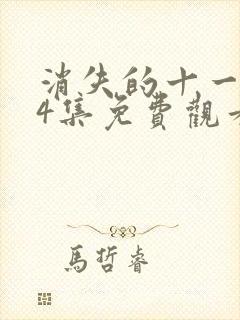 消失的十一
4集免費觀
馬哲睿